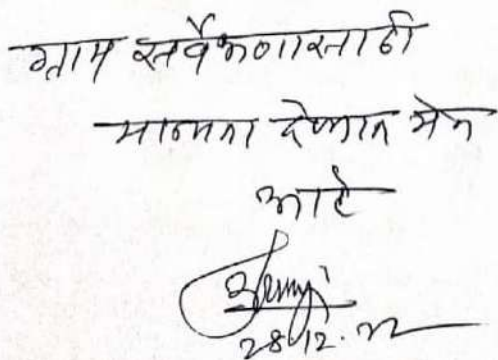 ग्राम सर्वेक्षणासाठी
मान्यता देण्यात येत
आहे
28.12.22